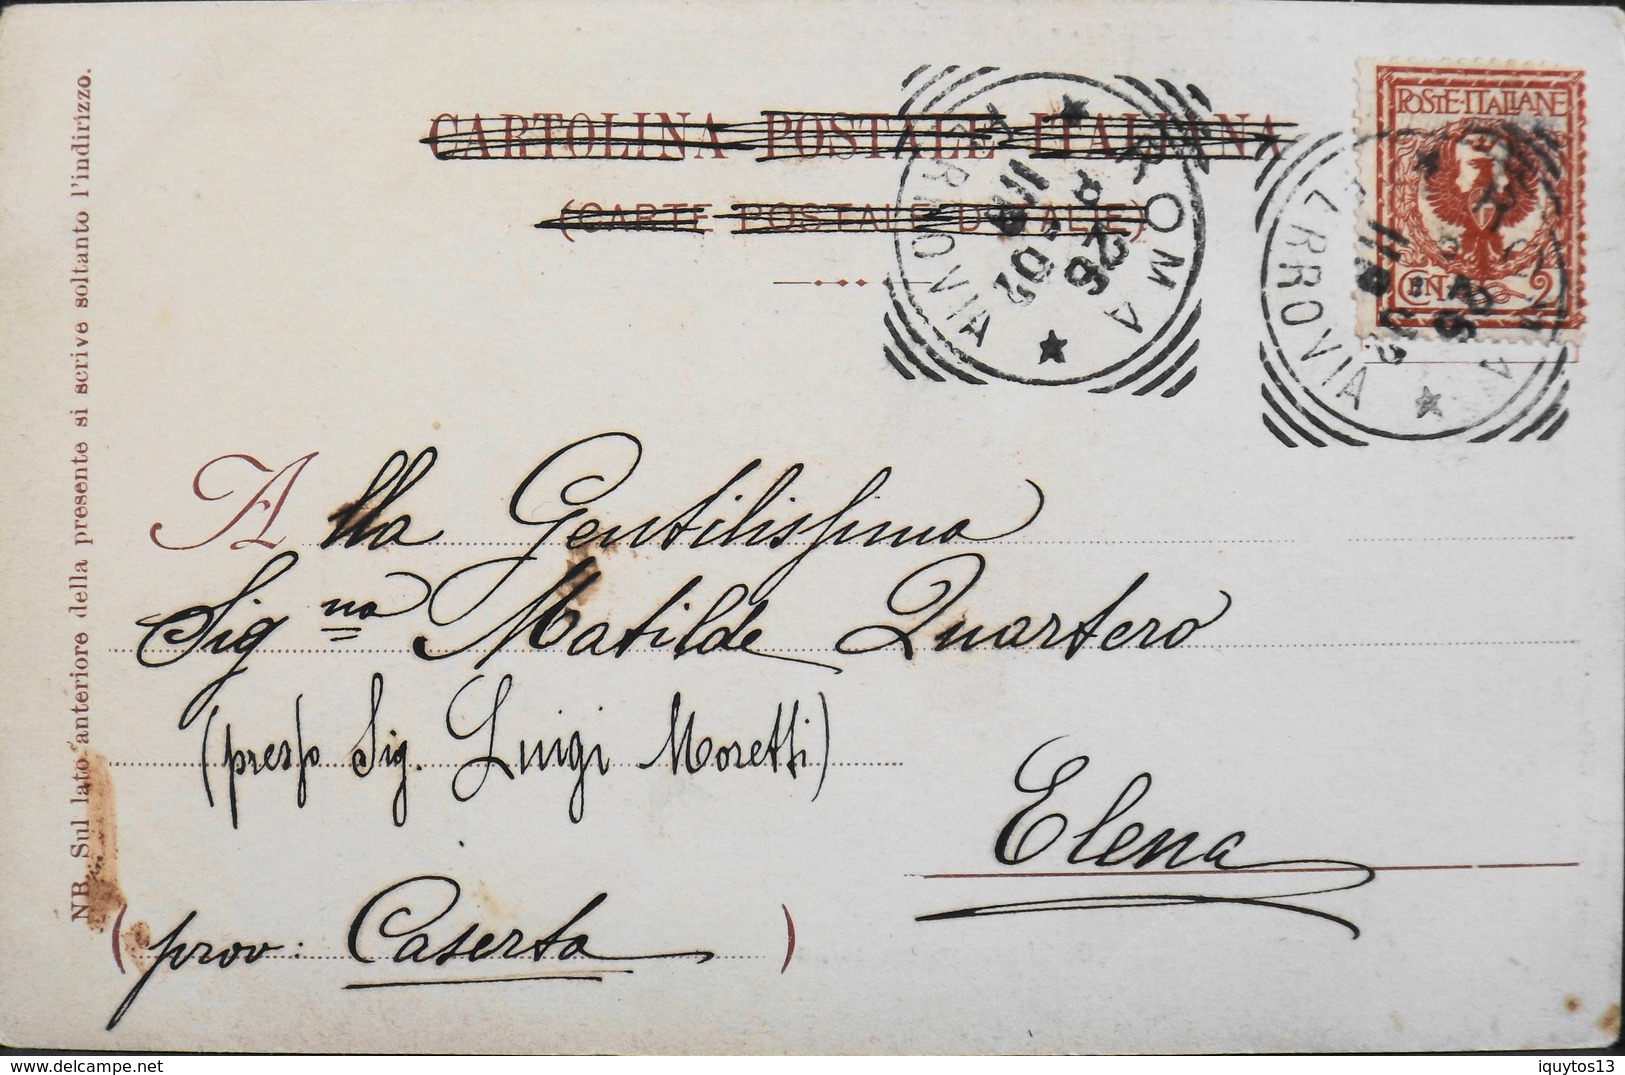 CARTOLINA POSTALE ITALIANA
(CARTE POSTALE D'ITALIE)
POSTE·ITALIANE
CENT. 2
ROMA
FERROVIA
26
8-02
ROMA
FERROVIA
Alla Gentilissima
Sig.na Matilde Quartero
(presso Sig. Luigi Moretti)
Elena
(prov: Caserta)
NB. Sul lato anteriore della presente si scrive soltanto l'indirizzo.
iquytos13